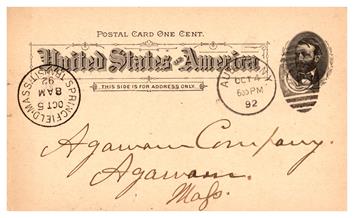 POSTAL CARD ONE CENT.
United States of America
THIS SIDE IS FOR ADDRESS ONLY.
SPRINGFIELD, MASS. TRANSIT
OCT 5
8 AM
92
OCT 4
PM
92
Agawam Company.
Agawam.
Mass.